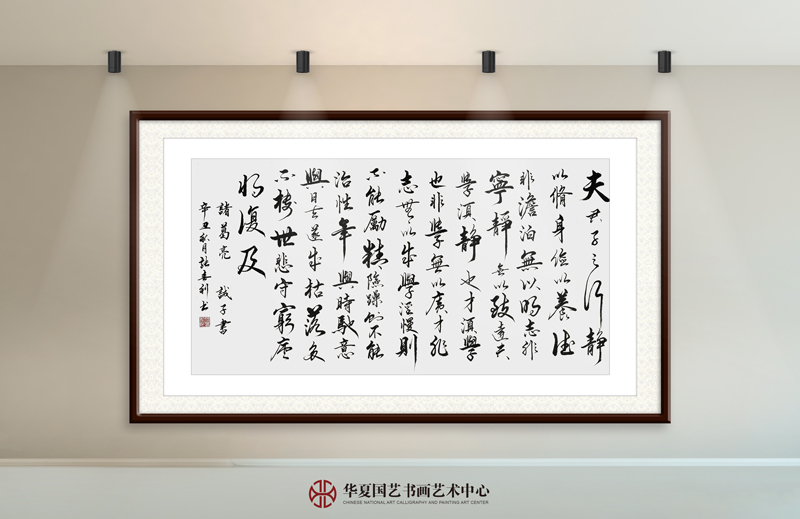 夫君子之行静
以脩身儉以養德
非澹泊無以明志非
寧靜无以致遠夫
學須静也才須學
也非學無以廣才非
志無以成學淫慢則
不能勵精險躁則不能
治性年與時馳意
與日去遂成枯落多
不接世悲守窮廬
將復及
諸葛亮 誡子書
辛丑秋月利书
华夏国艺书画艺术中心
CHINESE NATIONAL ART CALLIGRAPHY AND PAINTING ART CENTER